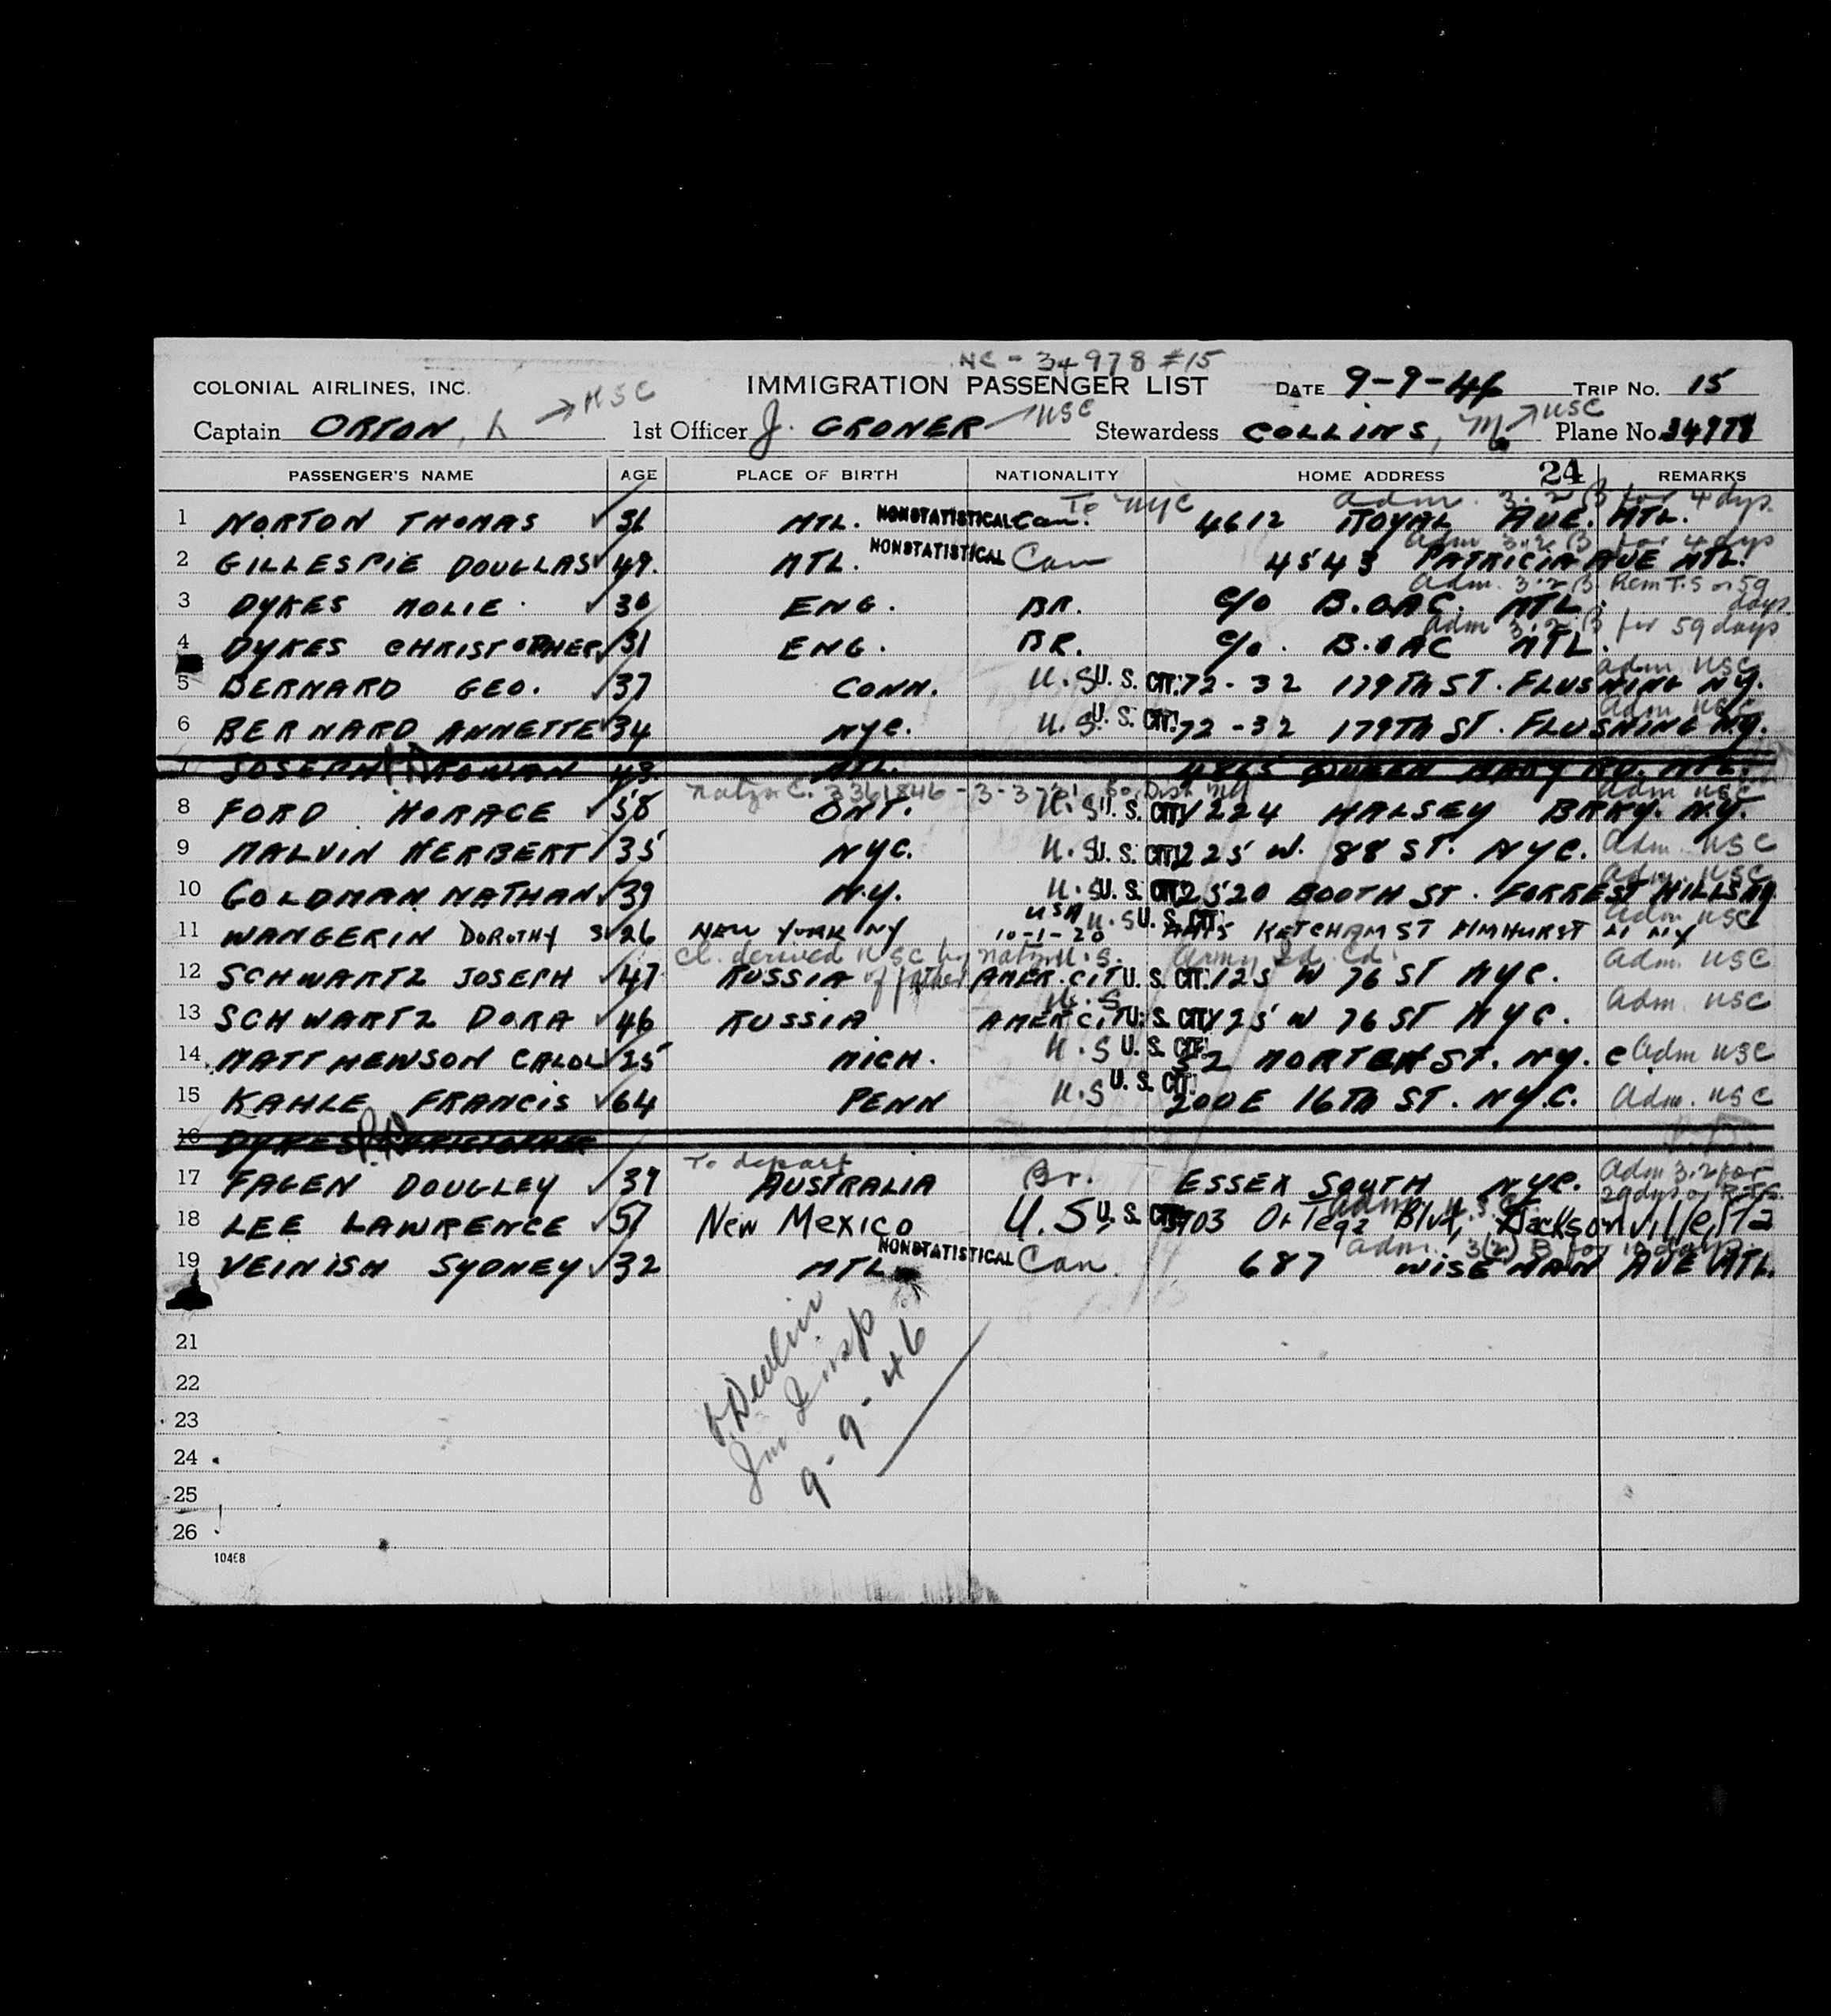 NC - 34978 #15
COLONIAL AIRLINES, INC. IMMIGRATION PASSENGER LIST DATE 9-9-46 TRIP NO. 15
Captain ORTON, → USC 1st Officer J. GRONER → USC Stewardess COLLINS, M. → USC Plane No. 34978
PASSENGER'S NAME AGE PLACE OF BIRTH NATIONALITY HOME ADDRESS 24 REMARKS
To NYC adm. 3.2 B for 4 dys.
1 NORTON THOMAS ✓ 36 MTL. NONSTATISTICAL Can. 4612 ROYAL AVE. MTL.
adm 3.2 B for 4 days
2 GILLESPIE DOUGLAS ✓ 49. MTL. NONSTATISTICAL Can 4543 PATRICIA AVE MTL.
adm. 3.2 B Rem T.S on 59 days
3 DYKES MOLIE ✓ 30 ENG. BR. C/O B.OAC. MTL.
adm 3.2 B for 59 days
4 DYKES CHRISTOPHER ✓ 31 ENG. BR. C/O. B.OAC MTL.
adm USC
5 BERNARD GEO. ✓ 37 CONN. U.S U. S. CIT. 72-32 179TH ST. FLUSHING NY.
adm USC
6 BERNARD ANNETTE ✓ 34 NYC. U.S U. S. CIT. 72-32 179TH ST. FLUSHING N.Y.
7 JOSEPH ROWAN 43 MTL. 4865 QUEEN MARY RD. MTL.
Natzn C. 3361846 - 3-3-31 So. Dist. NY adm USC
8 FORD HORACE ✓ 58 ONT. U.S U. S. CIT. 1224 HALSEY BRKY. N.Y.
9 MALVIN HERBERT ✓ 35 NYC. U.S U. S. CIT. 225 W. 88 ST. NYC. adm. USC
adm. USC
10 GOLDMAN NATHAN ✓ 39 N.Y. U.S U. S. CIT. 2520 BOOTH ST. FORREST HILLS NY
USA adm USC
11 WANGERIN DOROTHY S ✓ 26 NEW YORK NY 10-1-20 U.S U. S. CIT. KETCHAM ST ELMHURST LI NY
Cl. derived USC by natzn U.S. Army Id. Cd.
12 SCHWARTZ JOSEPH ✓ 47 RUSSIA of father AMER. CIT U. S. CIT. 125 W 76 ST NYC. adm. USC
U.S
13 SCHWARTZ DORA ✓ 46 RUSSIA AMER CIT U. S. CIT. 125 W 76 ST NYC. adm. USC
14 MATTHEWSON CALOL ✓ 25 MICH. U.S U. S. CIT. 52 MORTEN ST. NY. C adm USC
15 KAHLE FRANCIS ✓ 64 PENN U.S U. S. CIT. 200 E 16TH ST. NY.C. adm. USC
16 DYKES CHRISTOPHER
To depart
17 FAGEN DOUGLEY ✓ 39 AUSTRALIA Br. ESSEX SOUTH NYC. adm 3.2 for
29 dys or R.T.S.
adm U.S.C.
18 LEE LAWRENCE ✓ 57 New Mexico U.S U. S. CIT. 3903 Ortega Blvd, Jacksonville, Fla
adm. 3(2) B for 10 days
19 VEINISH SYDNEY ✓ 32 MTL NONSTATISTICAL Can. 687 WISEMAN AVE MTL.
21
22
Devlin
Imm Insp
9-9-46
23
24
25
26
10468